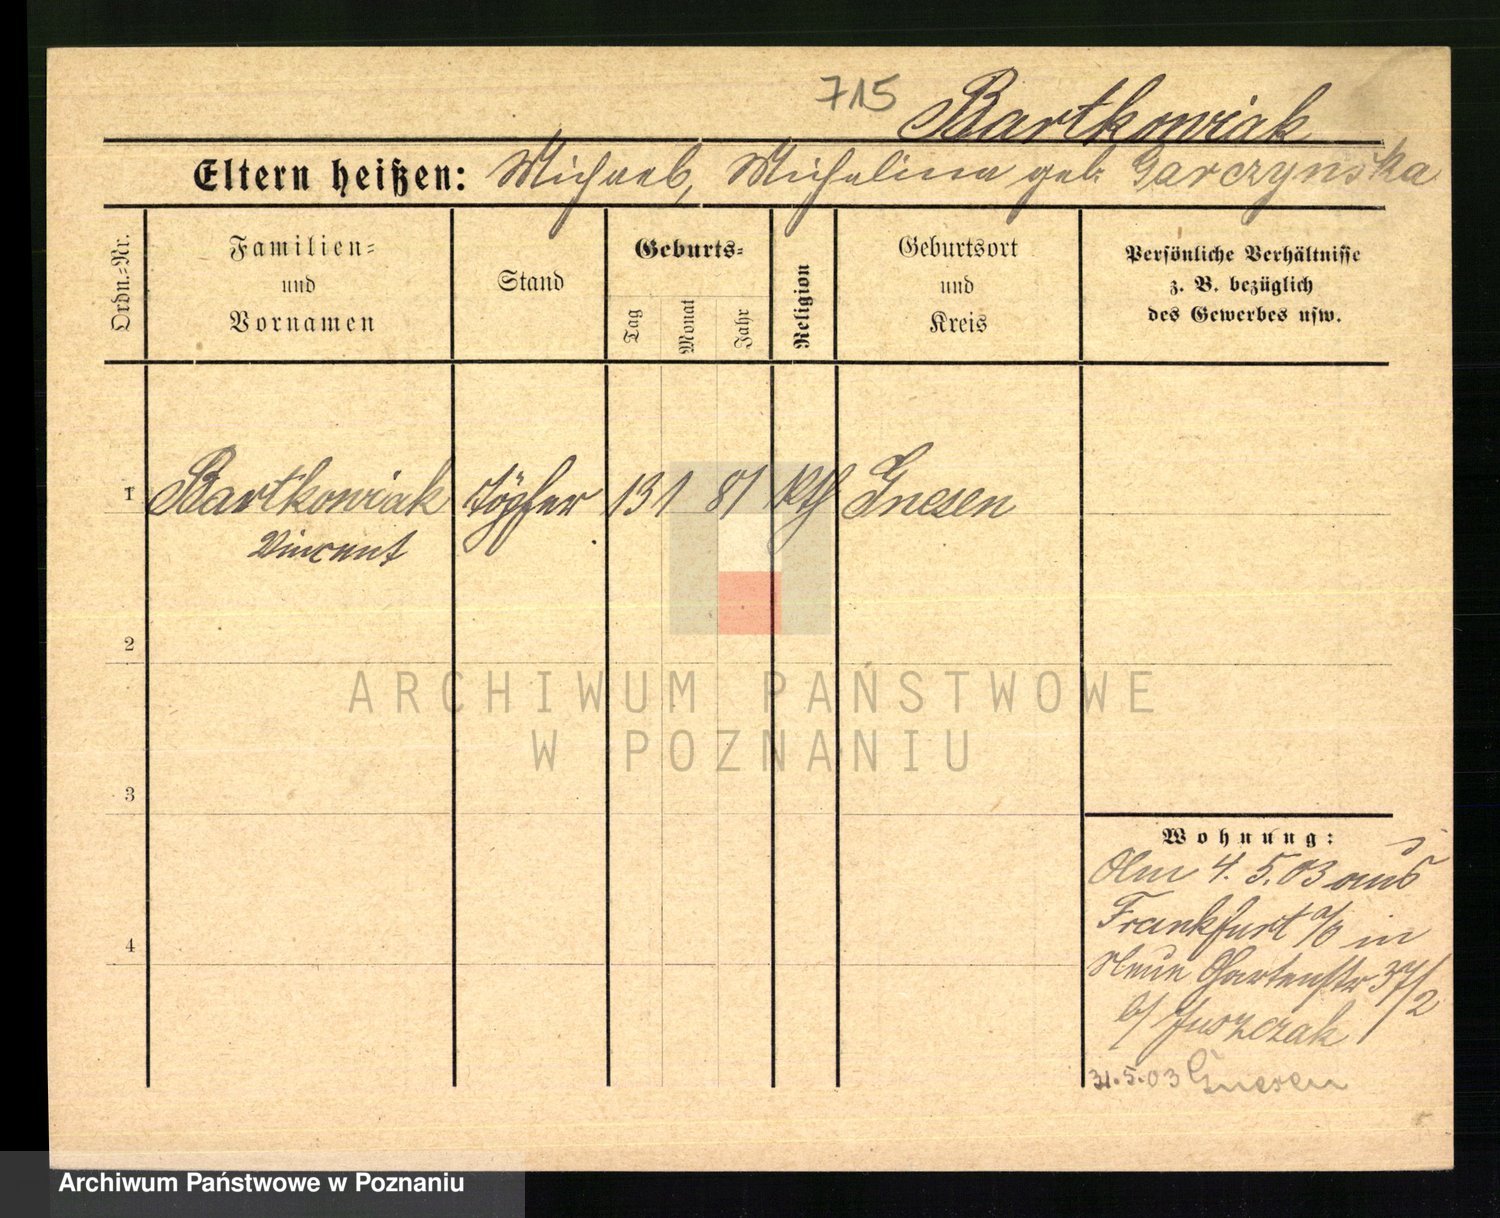 715 Bartkowiak
Eltern heißen: Michael, Michalina geb. Garczynska
Ordn.=Nr.
Familien=
und
Vornamen
Stand
Geburts=
Tag
Monat
Jahr
Religion
Geburtsort
und
Kreis
Persönliche Verhältnisse
z. B. bezüglich
des Gewerbes usw.
1 Bartkowiak Töpfer 13 1 81 kth Gnesen
Vincent
2
ARCHIWUM PAŃSTWOWE
W POZNANIU
3
Wohnung:
Am 4.5.03 aus
Frankfurt a/O in
4
Neue Gartenstr 37/2
b/ Juszczak
31.5.03 Gnesen
Archiwum Państwowe w Poznaniu